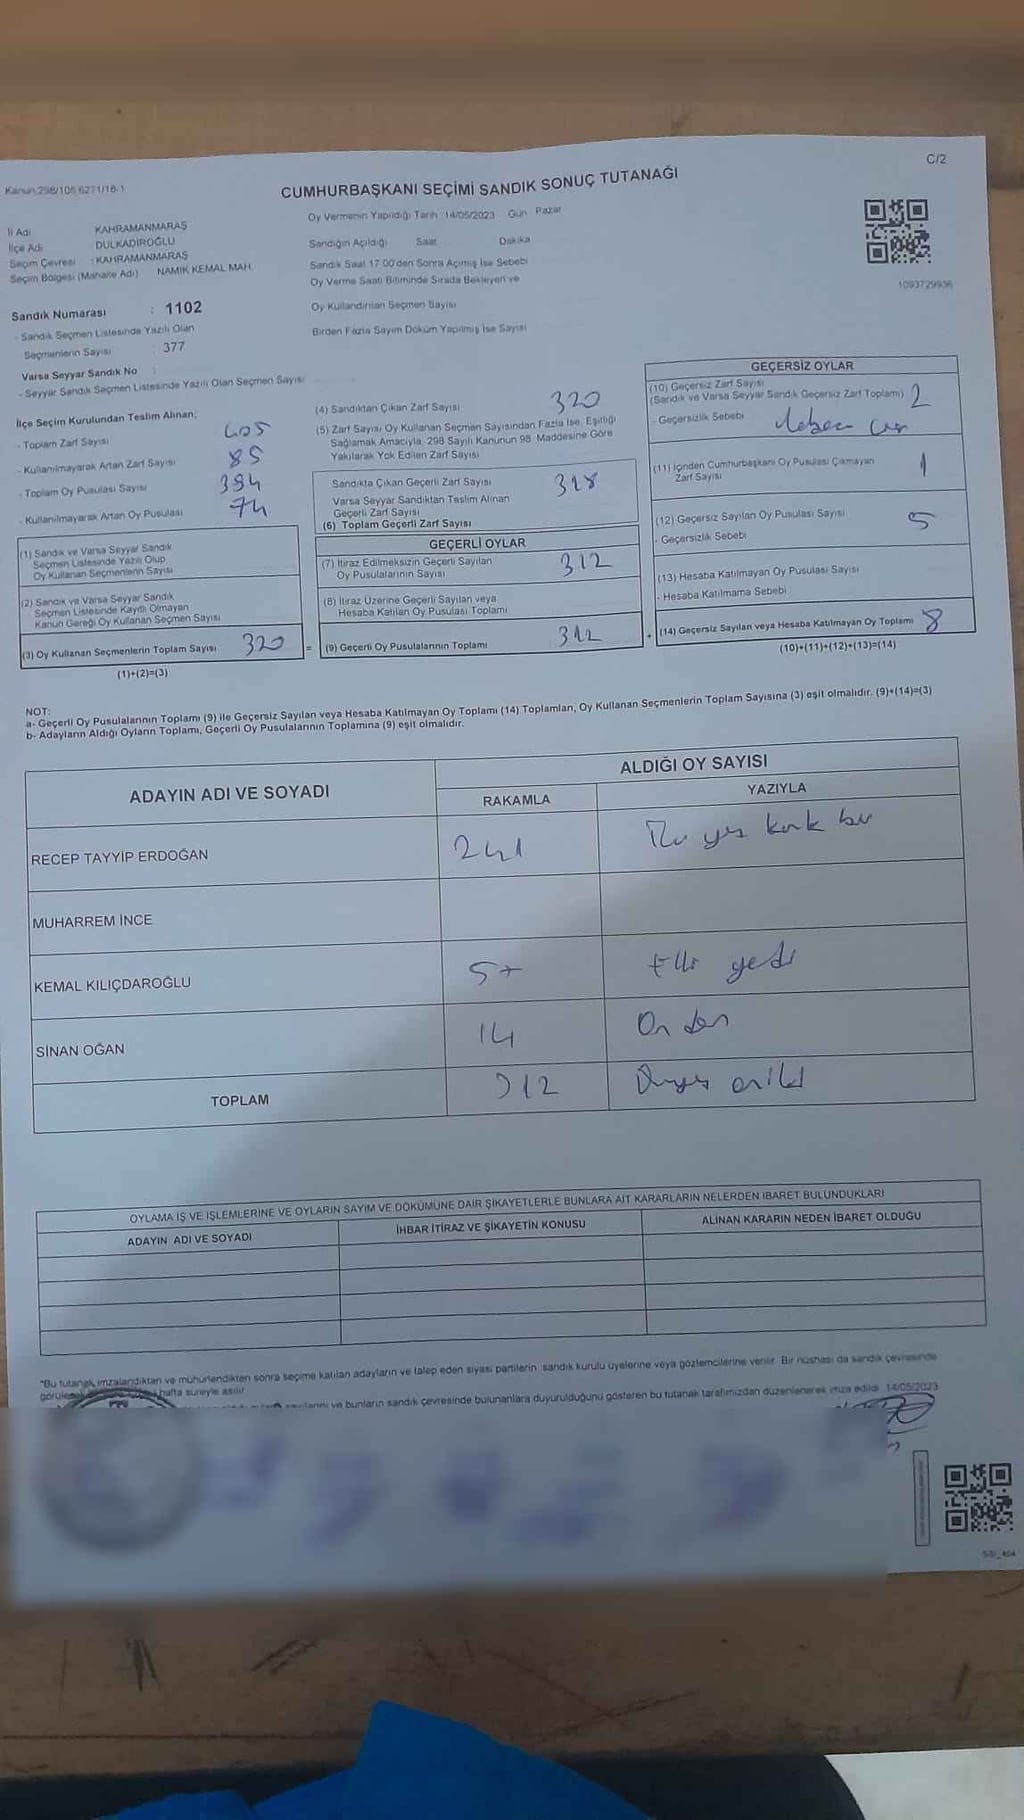 C/2
Kanun:298/105,6271/18-1
CUMHURBAŞKANI SEÇİMİ SANDIK SONUÇ TUTANAĞI
Oy Vermenin Yapıldığı Tarih: 14/05/2023 Gün Pazar
İl Adı KAHRAMANMARAŞ
İlçe Adı DULKADİROĞLU
Seçim Çevresi : KAHRAMANMARAŞ
Seçim Bölgesi (Mahalle Adı) NAMIK KEMAL MAH.
Sandığın Açıldığı Saat Dakika
Sandık Saat 17.00'den Sonra Açımış İse Sebebi
Oy Verme Saati Bitiminde Sırada Bekleyen ve
Oy Kullandırılan Seçmen Sayısı
Birden Fazla Sayım Döküm Yapılmış İse Sayısı
1093729936
Sandık Numarası : 1102
- Sandık Seçmen Listesinde Yazılı Olan
Seçmenlerin Sayısı : 377
Varsa Seyyar Sandık No :
- Seyyar Sandık Seçmen Listesinde Yazılı Olan Seçmen Sayısı
İlçe Seçim Kurulundan Teslim Alınan;
- Toplam Zarf Sayısı 405
- Kullanılmayarak Artan Zarf Sayısı 85
- Toplam Oy Pusulası Sayısı 394
- Kullanılmayarak Artan Oy Pusulası 74
(1) Sandık ve Varsa Seyyar Sandık
Seçmen Listesinde Yazılı Olup
Oy Kullanan Seçmenlerin Sayısı
(2) Sandık ve Varsa Seyyar Sandık
Seçmen Listesinde Kayıtlı Olmayan
Kanun Gereği Oy Kullanan Seçmen Sayısı
(3) Oy Kullanan Seçmenlerin Toplam Sayısı 320
(1)+(2)=(3)
(4) Sandıktan Çıkan Zarf Sayısı 320
(5) Zarf Sayısı Oy Kullanan Seçmen Sayısından Fazla İse, Eşitliği
Sağlamak Amacıyla, 298 Sayılı Kanunun 98. Maddesine Göre
Yakılarak Yok Edilen Zarf Sayısı
Sandıkta Çıkan Geçerli Zarf Sayısı 318
Varsa Seyyar Sandıktan Teslim Alınan
Geçerli Zarf Sayısı
(6) Toplam Geçerli Zarf Sayısı
GEÇERLİ OYLAR
(7) İtiraz Edilmeksizin Geçerli Sayılan
Oy Pusulalarının Sayısı 312
(8) İtiraz Üzerine Geçerli Sayılan veya
Hesaba Katılan Oy Pusulası Toplamı
= (9) Geçerli Oy Pusulalarının Toplamı 312
GEÇERSİZ OYLAR
(10) Geçersiz Zarf Sayısı
(Sandık ve Varsa Seyyar Sandık Geçersiz Zarf Toplamı) 2
- Geçersizlik Sebebi
(11) İçinden Cumhurbaşkanı Oy Pusulası Çıkmayan
Zarf Sayısı 1
(12) Geçersiz Sayılan Oy Pusulası Sayısı 5
- Geçersizlik Sebebi
(13) Hesaba Katılmayan Oy Pusulası Sayısı
- Hesaba Katılmama Sebebi
+ (14) Geçersiz Sayılan veya Hesaba Katılmayan Oy Toplamı 8
(10)+(11)+(12)+(13)=(14)
NOT:
a- Geçerli Oy Pusulalarının Toplamı (9) ile Geçersiz Sayılan veya Hesaba Katılmayan Oy Toplamı (14) Toplamları, Oy Kullanan Seçmenlerin Toplam Sayısına (3) eşit olmalıdır. (9)+(14)=(3)
b- Adayların Aldığı Oyların Toplamı, Geçerli Oy Pusulalarının Toplamına (9) eşit olmalıdır.
ADAYIN ADI VE SOYADI
ALDIĞI OY SAYISI
RAKAMLA YAZIYLA
RECEP TAYYİP ERDOĞAN 241 İki yüz kırk bir
MUHARREM İNCE
KEMAL KILIÇDAROĞLU 57 Elli yedi
SİNAN OĞAN 14 On dört
TOPLAM 312 Üçyüz oniki
OYLAMA İŞ VE İŞLEMLERİNE VE OYLARIN SAYIM VE DÖKÜMÜNE DAİR ŞİKAYETLERLE BUNLARA AİT KARARLARIN NELERDEN İBARET BULUNDUKLARI
ADAYIN ADI VE SOYADI İHBAR İTİRAZ VE ŞİKAYETİN KONUSU ALINAN KARARIN NEDEN İBARET OLDUĞU
"Bu tutanak, imzalandıktan ve mühürlendikten sonra seçime katılan adayların ve talep eden siyasi partilerin, sandık kurulu üyelerine veya gözlemcilerine verilir. Bir nüshası da sandık çevresinde
hafta süreyle asılır
ve bunların sandık çevresinde bulunanlara duyurulduğunu gösteren bu tutanak tarafımızdan düzenlenerek imza edildi. 14/05/2023